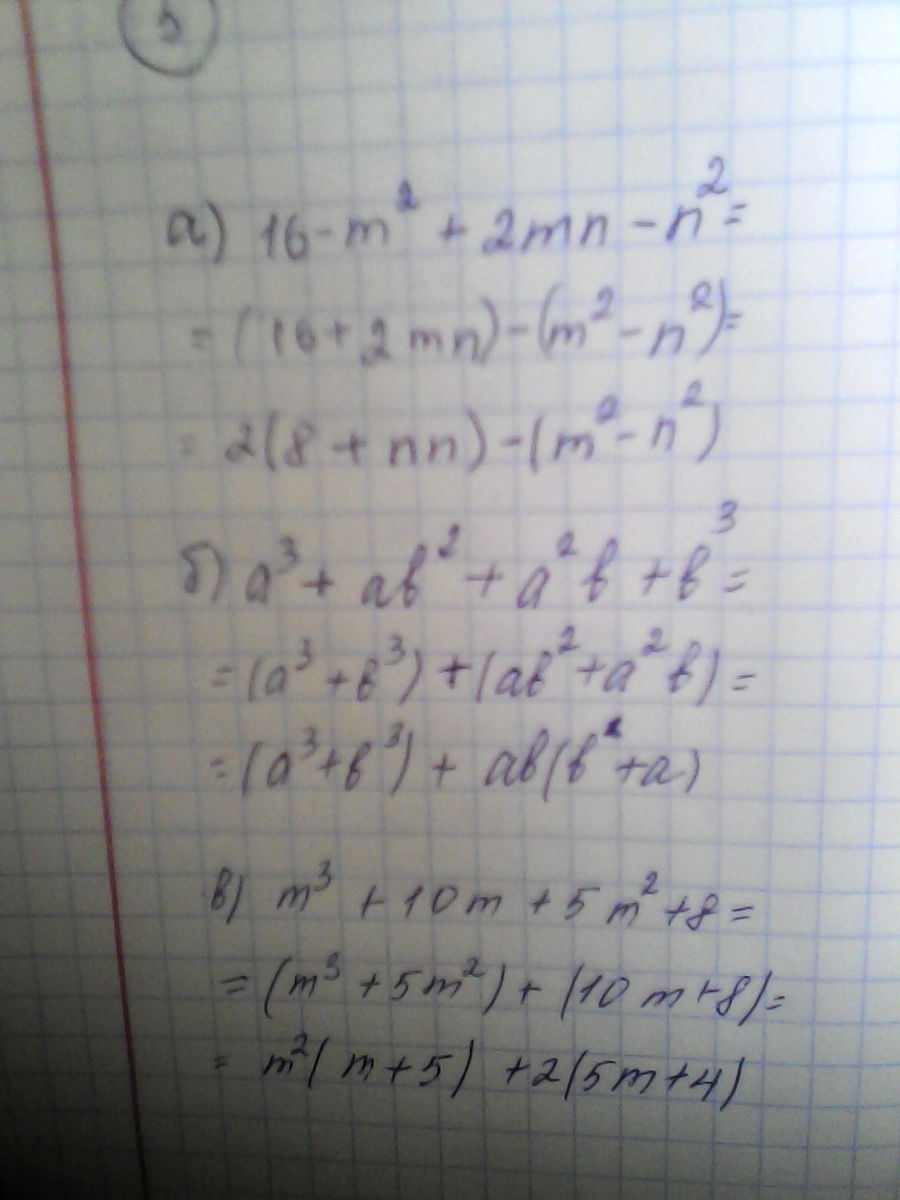 3
а) 16-m² + 2mn - n² =
= (16 + 2mn) - (m² - n²) =
= 2(8 + nn) - (m² - n²)
б) a³ + ab² + a²b + b³ =
= (a³ + b³) + (ab² + a²b) =
= (a³ + b³) + ab(b + a)
в) m³ + 10m + 5m² + 8 =
= (m³ + 5m²) + (10m + 8) =
= m²(m + 5) + 2(5m + 4)